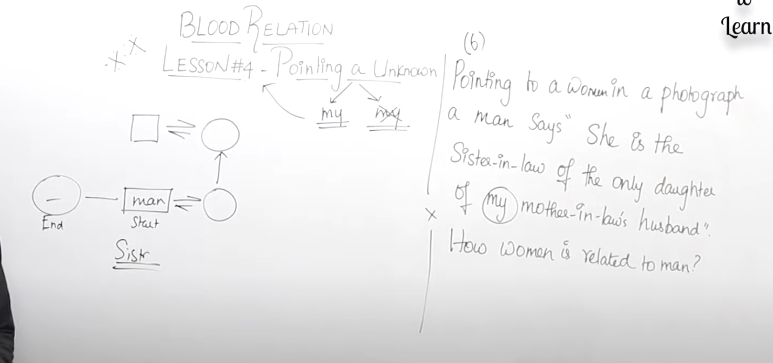 to
Learn
BLOOD RELATION
LESSON#4 - Pointing a Unknown
my my
man
End Start
Sistr
(6)
Pointing to a women in a photograph
a man Says" She is the
Sister-in-law of the only daughter
of my mother-in-law's husband".
How women is related to man?